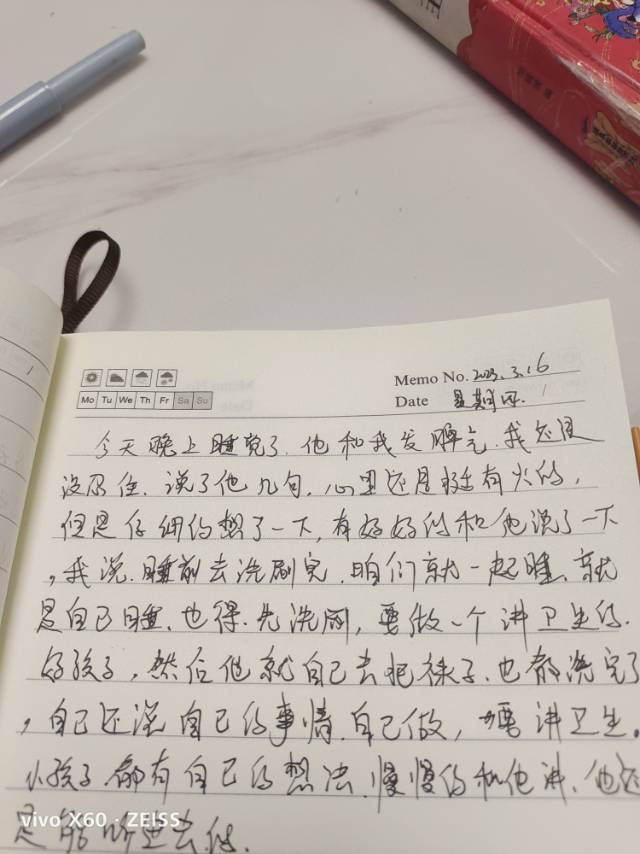 Memo No. 2023.3.16
Mo Tu We Th Fr Sa Su
Date 星期四
今天晚上睡觉了.他和我发脾气.我还是
没忍住.说了他几句.心里还是挺有火的,
但是仔细的想了一下,有好好的和他说了一下
,我说.睡前去洗刷完.咱们就一起睡.就
是自己睡.也得.先洗刷,要做一个讲卫生的.
好孩子,然后他就自己去把袜子.也都洗完了
,自己还说自己的事情.自己做,要讲卫生。
小孩子.都有自己的想法.慢慢的和他讲.他还
是能听进去的.
vivo X60 · ZEISS